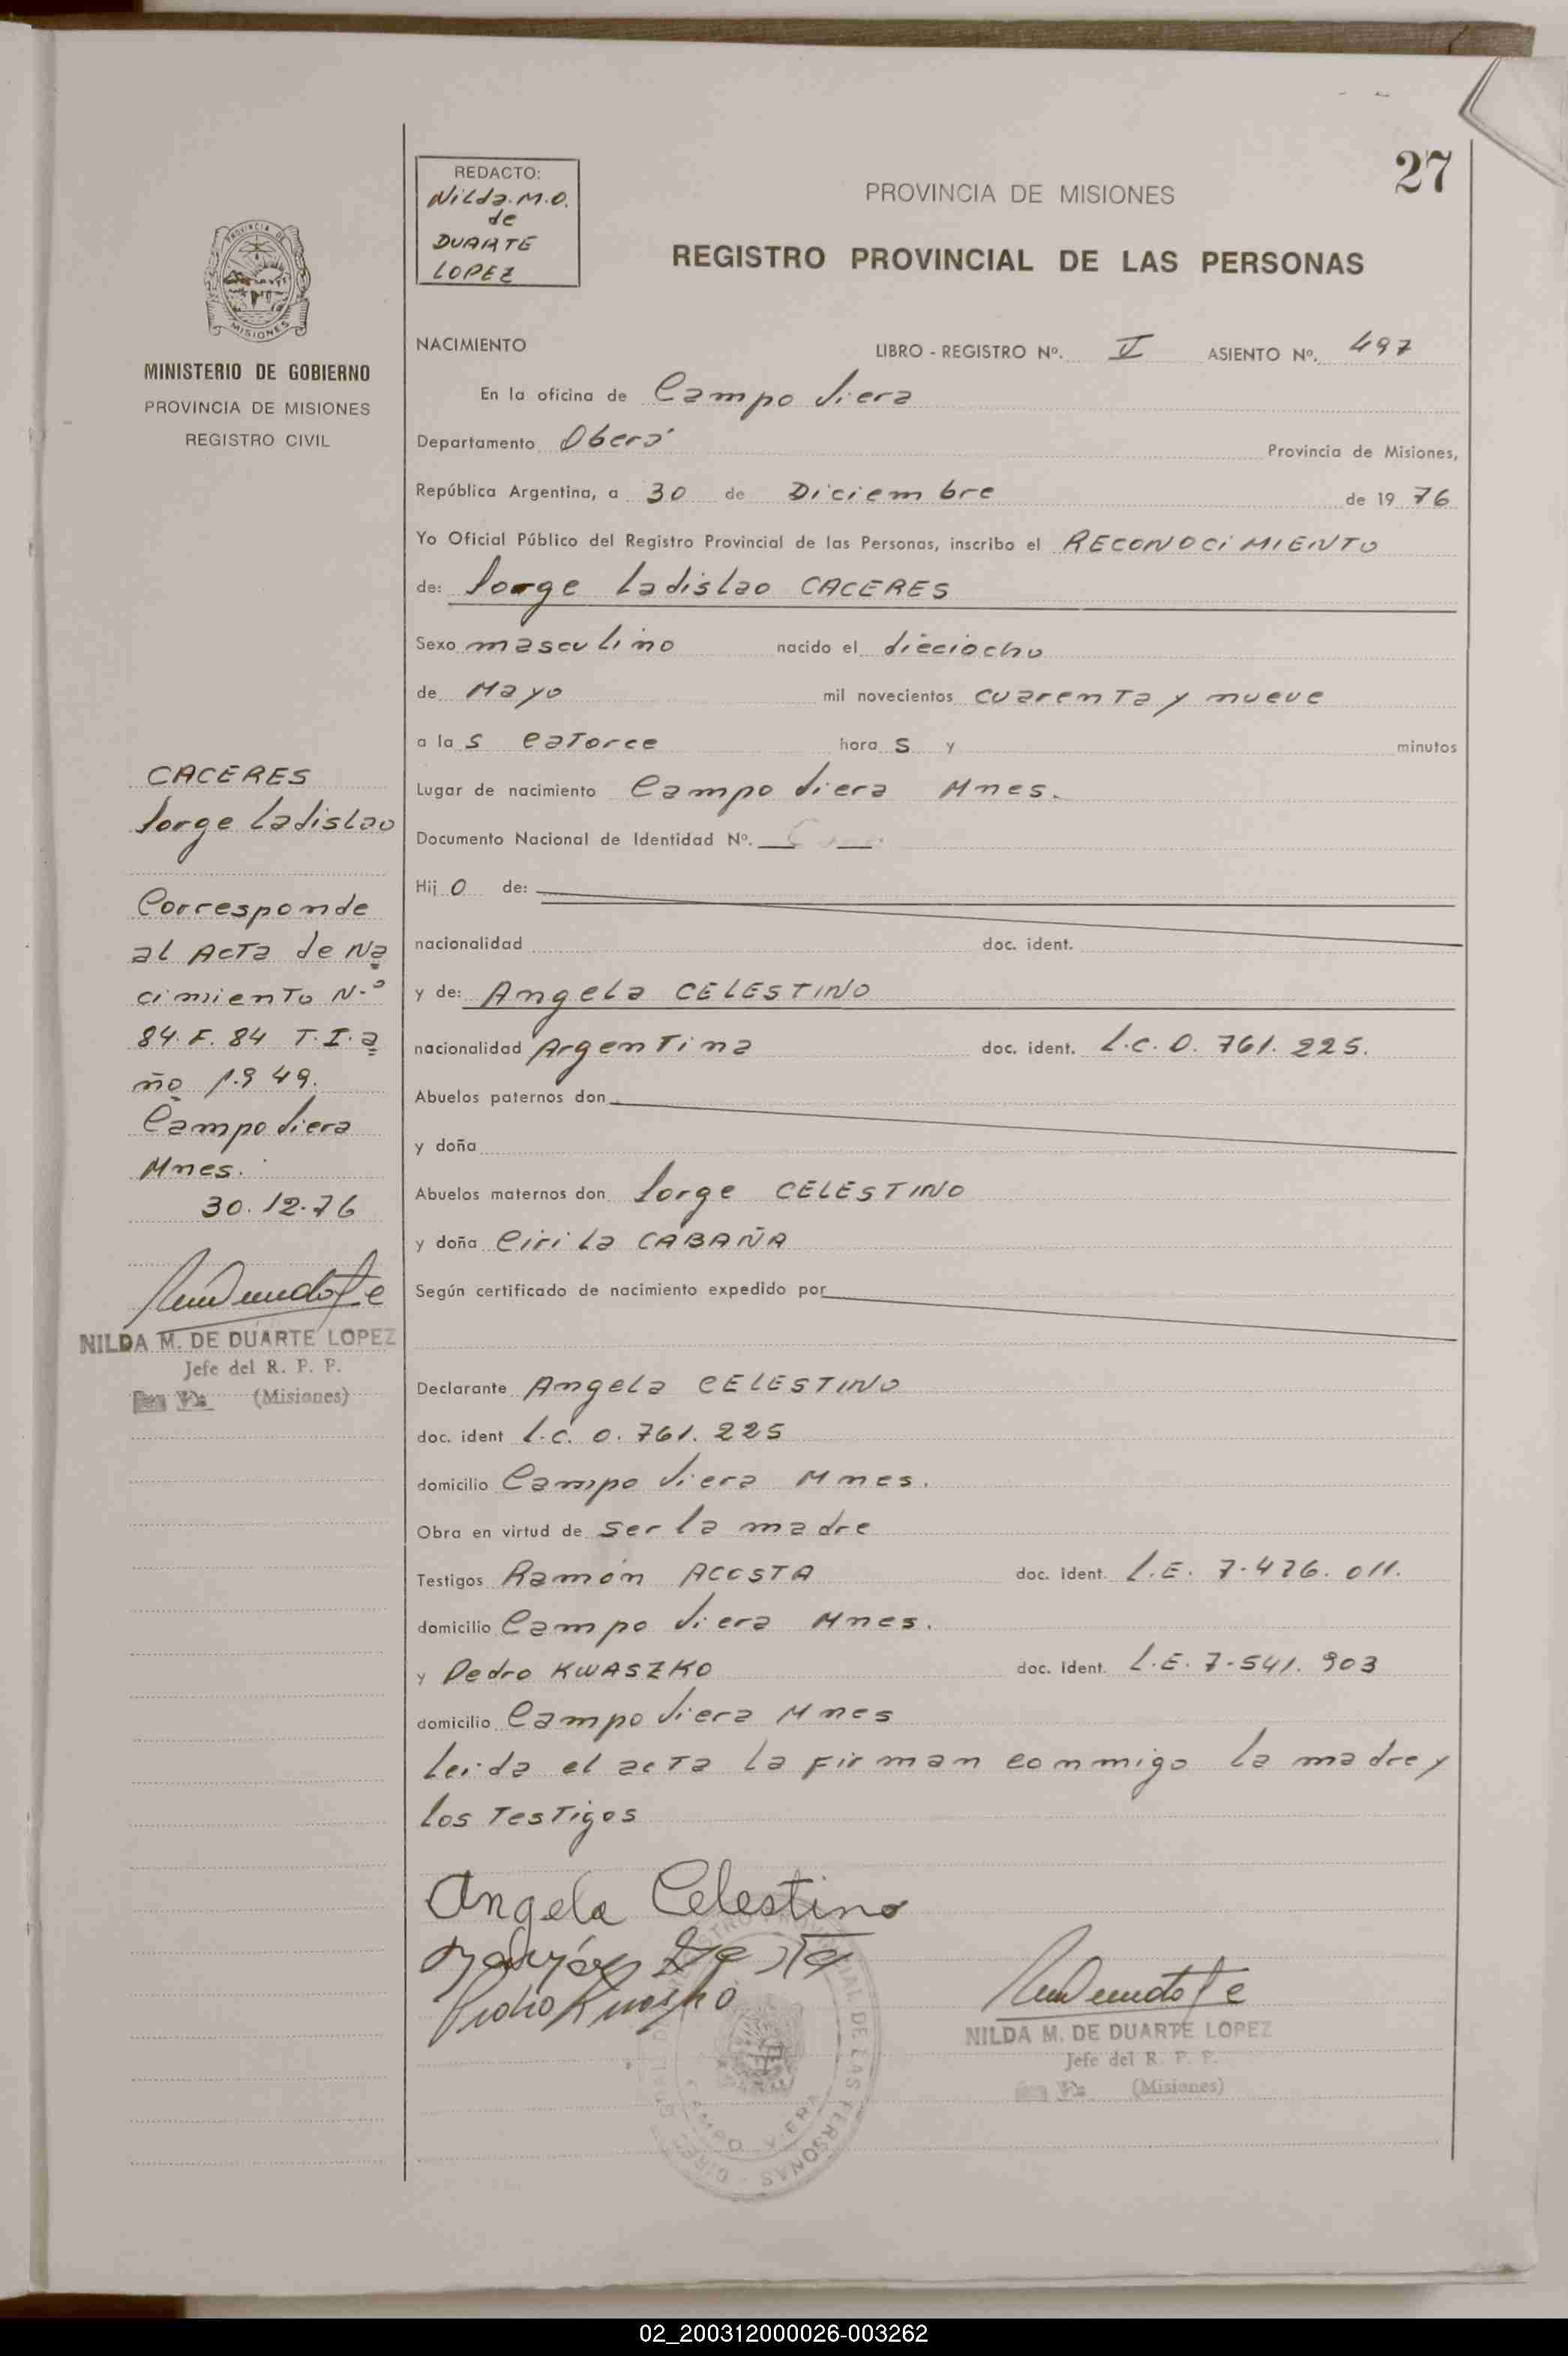 27
REDACTO:
Nilda.M.O.
de
DUARTE
LOPEZ
PROVINCIA DE MISIONES
REGISTRO PROVINCIAL DE LAS PERSONAS
PROVINCIA DE
MISIONES
MINISTERIO DE GOBIERNO
PROVINCIA DE MISIONES
REGISTRO CIVIL
NACIMIENTO LIBRO - REGISTRO Nº. V ASIENTO Nº. 497
En la oficina de Campo Viera
Departamento Oberá Provincia de Misiones,
República Argentina, a 30 de Diciembre de 19 76
Yo Oficial Público del Registro Provincial de las Personas, inscribo el RECONOCIMIENTO
de: Jorge Ladislao CACERES
Sexo masculino nacido el dieciocho
de Mayo mil novecientos cuarenta y nueve
a la s catorce hora s y minutos
Lugar de nacimiento Campo Viera Mnes.
Documento Nacional de Identidad Nº.
Hij o de:
nacionalidad doc. ident.
y de: Angela CELESTINO
nacionalidad Argentina doc. ident. L.C. 0.761.225.
Abuelos paternos don
y doña
Abuelos maternos don Jorge CELESTINO
y doña Cirila CABAÑA
Según certificado de nacimiento expedido por
Declarante Angela CELESTINO
doc. ident L.C. 0.761.225
domicilio Campo Viera Mnes.
Obra en virtud de ser la madre
Testigos Ramón ACOSTA doc. ident. L.E. 7.476.011.
domicilio Campo Viera Mnes.
y Pedro KWASZKO doc. ident. L.E. 7.541.903
domicilio Campo Viera Mnes
Leida el acta la firman conmigo la madre y
los testigos
Angela Celestino
NILDA M. DE DUARTE LOPEZ
Jefe del R. P. P.
(Misiones)
CACERES
Jorge Ladislao
Corresponde
al Acta de Na
cimiento N.º
84.F. 84 T.I. a
ño 1.949.
Campo Viera
Mnes.
30.12.76
NILDA M. DE DUARTE LOPEZ
Jefe del R. P. P.
(Misiones)
REGISTRO PROVINCIAL DE LAS PERSONAS
CAMPO VIERA
02_200312000026-003262